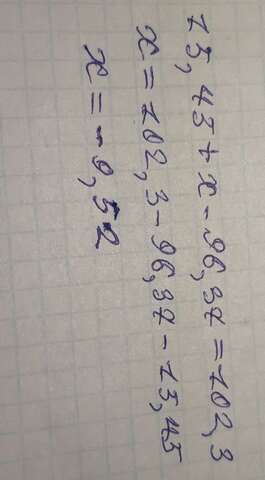 15,45 + x - 96,37 = 102,3
x = 102,3 - 96,37 - 15,45
x = -9,52